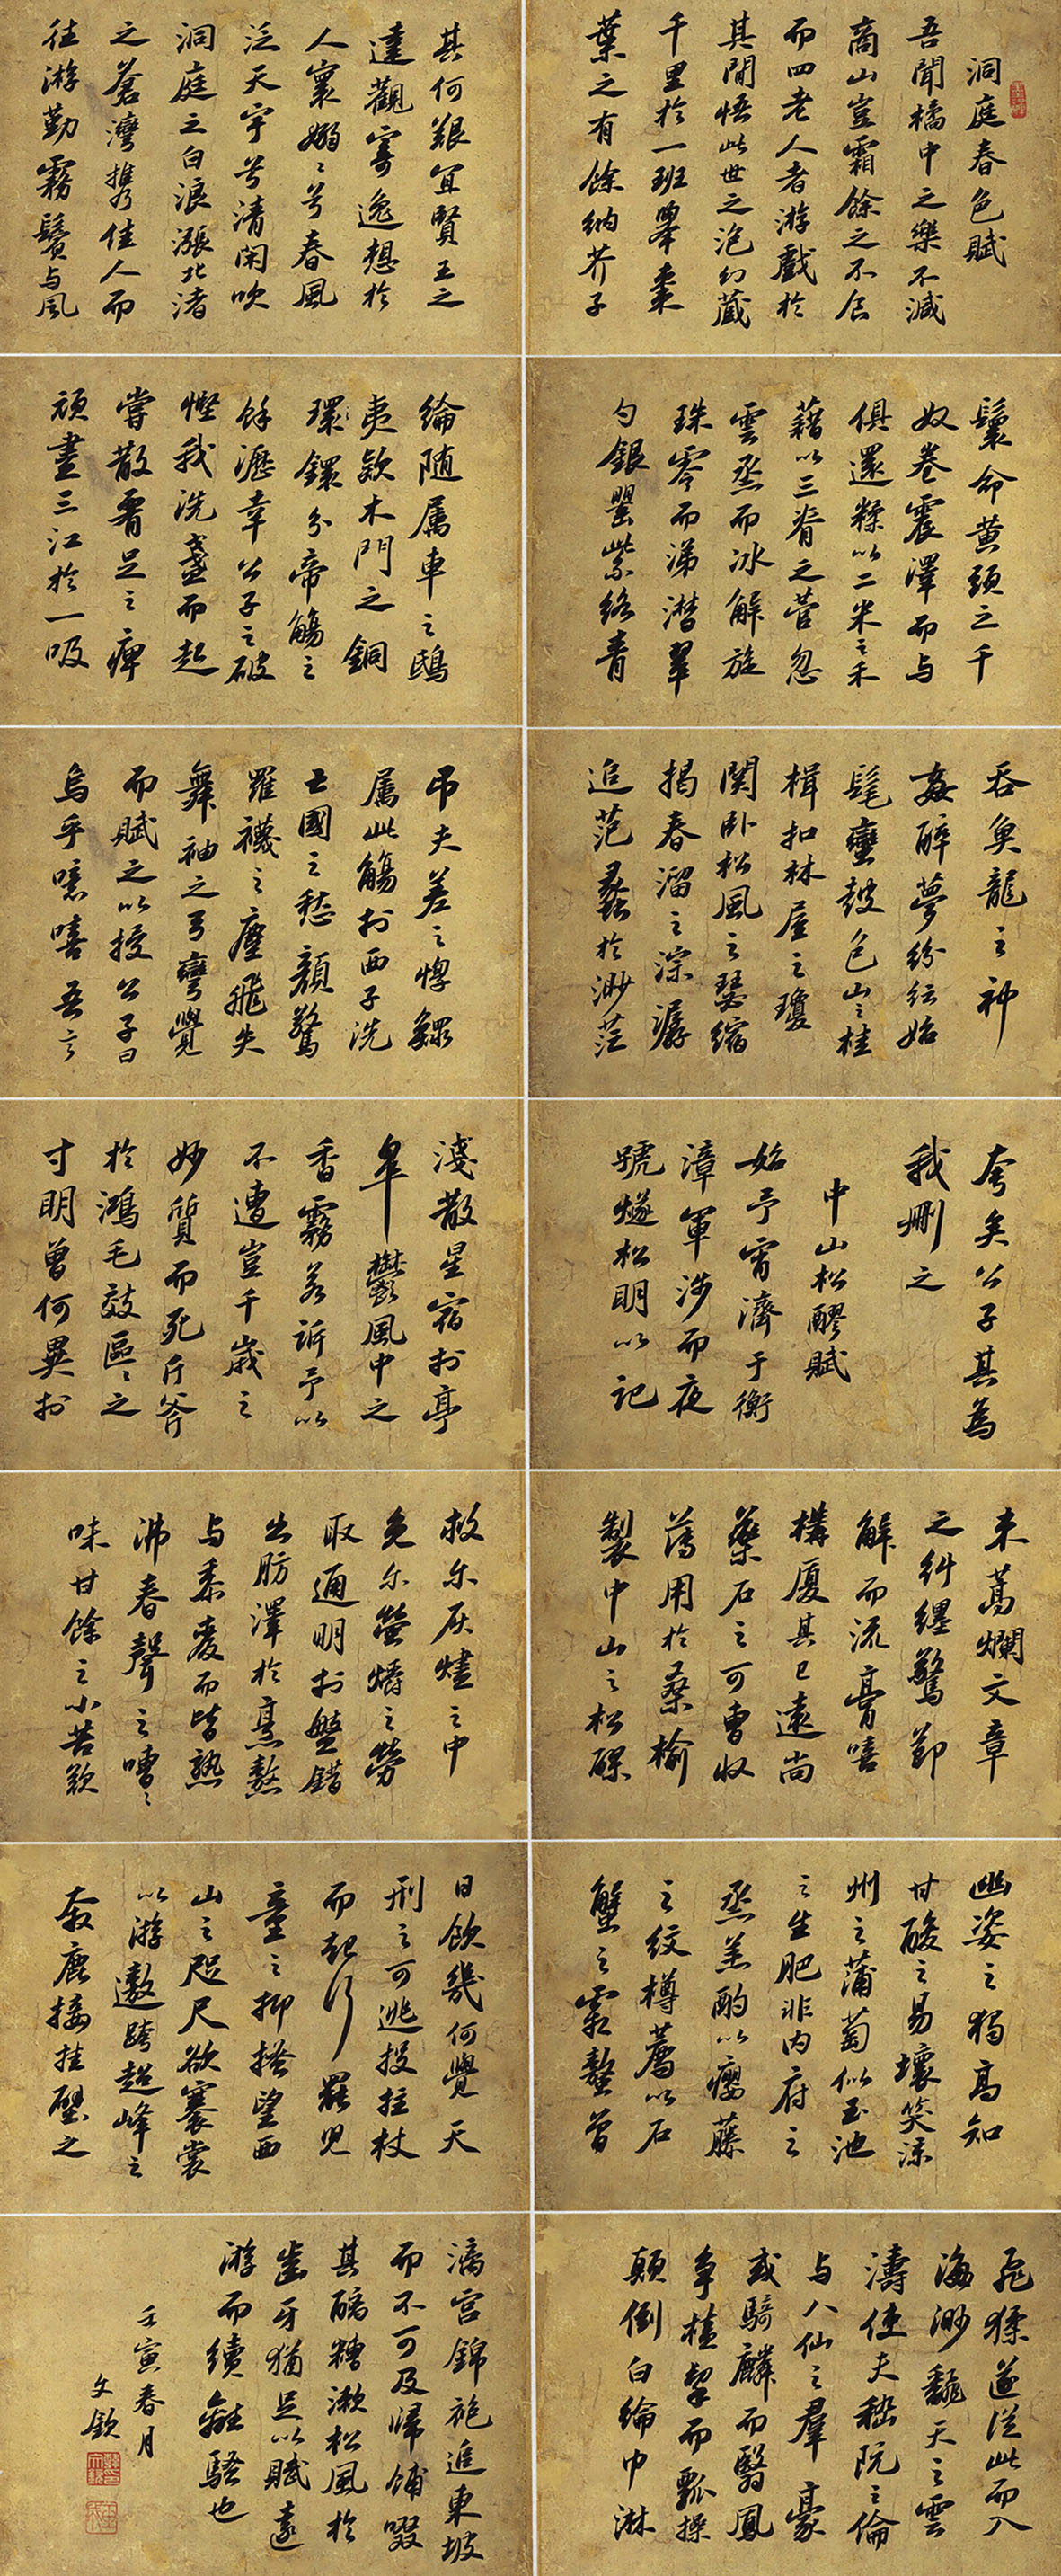 洞庭春色賦
吾聞橘中之樂不減
商山豈霜餘之不食
而四老人者游戲於
其間悟此世之泡幻藏
千里於一班舉棗
葉之有餘納芥子
其何艱宜賢王之
達觀寄逸想於
人寰嫋〻兮春風
泛天宇兮清閑吹
洞庭之白浪漲北渚
之蒼灣携佳人而
往游勤霧鬢与風
鬟命黃頭之千
奴卷震澤而与
俱還糅以二米之禾
藉以三脊之菅忽
雲烝而冰解旋
珠零而涕潸翠
勺銀罌紫絡青
綸随属車之鴟
夷款木門之銅
環鐶分帝觴之
餘瀝幸公子之破
慳我洗盞而起
嘗散腰足之痺
頑盡三江於一吸
吞魚龍之神
姦醉夢紛紜始
髦蠻鼓包山之桂
楫扣林屋之瓊
関卧松風之瑟縮
揭春溜之淙潺
追范蠡於渺茫
吊夫差之惸鰥
属此觴於西子洗
亡國之愁顏驚
羅襪之塵飛失
舞袖之弓彎覺
而賦之以授公子曰
烏乎噫嘻吾言
夸矣公子其為
我刪之
中山松醪賦
始予宵濟于衡
漳軍涉而夜
號燧松明以記
淺散星宿於亭
皋鬱風中之
香霧若訴予以
不遭豈千歲之
妙質而死斤斧
於鴻毛效區〻之
寸明曾何異於
束蒿爛文章
之糾纏驚節
解而流膏嘻
構厦其已遠尚
藥石之可曹收
薄用於桑榆
製中山之松醪
救尔灰燼之中
免尔螢爝之勞
取通明於盤錯
出肪澤於烹熬
与黍麥而皆熟
沸舂聲之嘈〻
味甘餘之小苦歎
幽姿之獨高知
甘酸之易壞笑涼
州之蒲萄似玉池
之生肥非内府之
烝羔酌以癭藤
之紋樽薦以石
蟹之霜螯曾
日飲幾何覺天
刑之可逃投拄杖
而起行罷兒
童之抑搔望西
山之咫尺欲褰裳
以游遨跨超峰之
奔鹿接挂壁之
飛猱遂從此而入
海渺翻天之雲
濤使夫嵇阮之倫
与八仙之羣豪
或騎麟而翳鳳
争榼挈而瓢操
顛倒白綸巾淋
漓宫錦袍追東坡
而不可及歸餔歠
其醨糟漱松風於
齒牙猶足以賦遠
游而續離騷也
壬寅春月
文欽